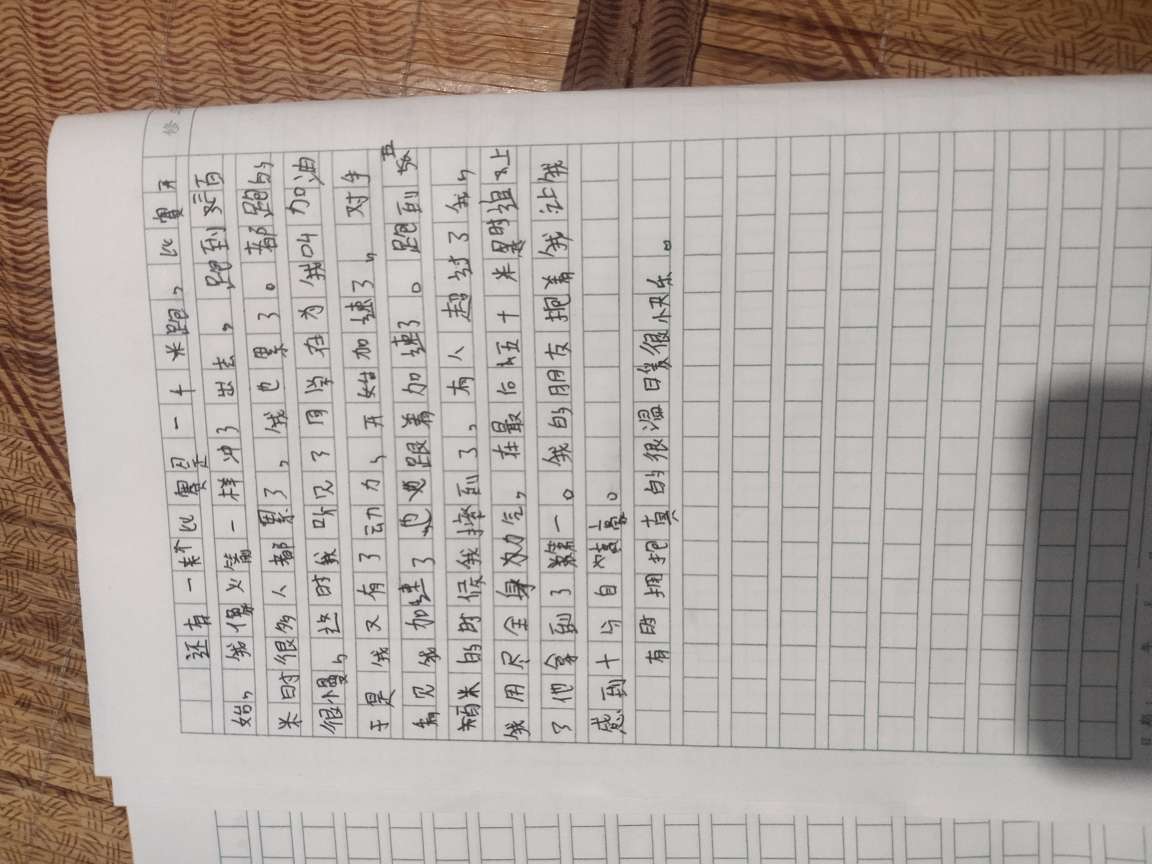 还有一种比赛是一千米跑，比赛开
始，我像火箭一样冲了出去，跑到三百
米时很多人都累了，我也累了。都跑的
很慢，这时我听见了同学在为我叫加油
于是我又有了动力，开始加速了，对手
看见我加速了也跟着加速了。跑到五
百米的时候我摔到了，有人超过了我，
我用尽全身力气，在最后五十米时追上
了他拿到了第一。我的朋友抱着我让我
感到十分自豪。
有时拥抱真的很温暖很快乐。